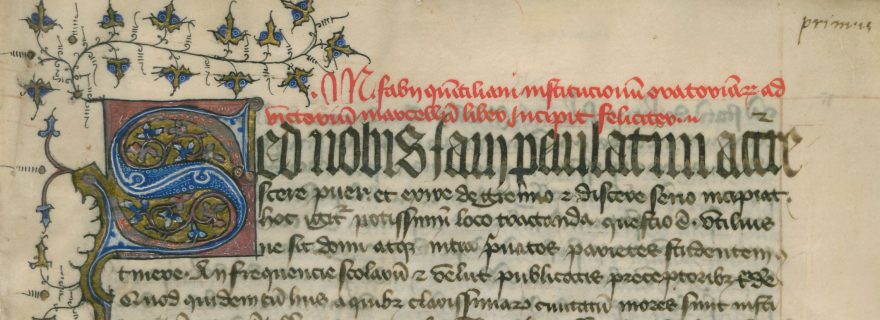 primus
M fabij quītiliani institucionū oratoriarꝝ ad
victoriū marcellū liber Incipit feliciter
Sed nobis Iam paulatim accre
scere puer. et exire de gremio ⁊ discere serio incipiat.
hoc igit᷑ potissimum loco tractanda questio ē. vtilius
ne sit domi atqꝫ intra p̄uatos parietes studentem
tinere. An frequencie scolarū ⁊ velut publicatis preceptoribꝫ
Quod quidem cū hiis a quibꝫ clarissimarꝝ ciuitatū mores sunt insti